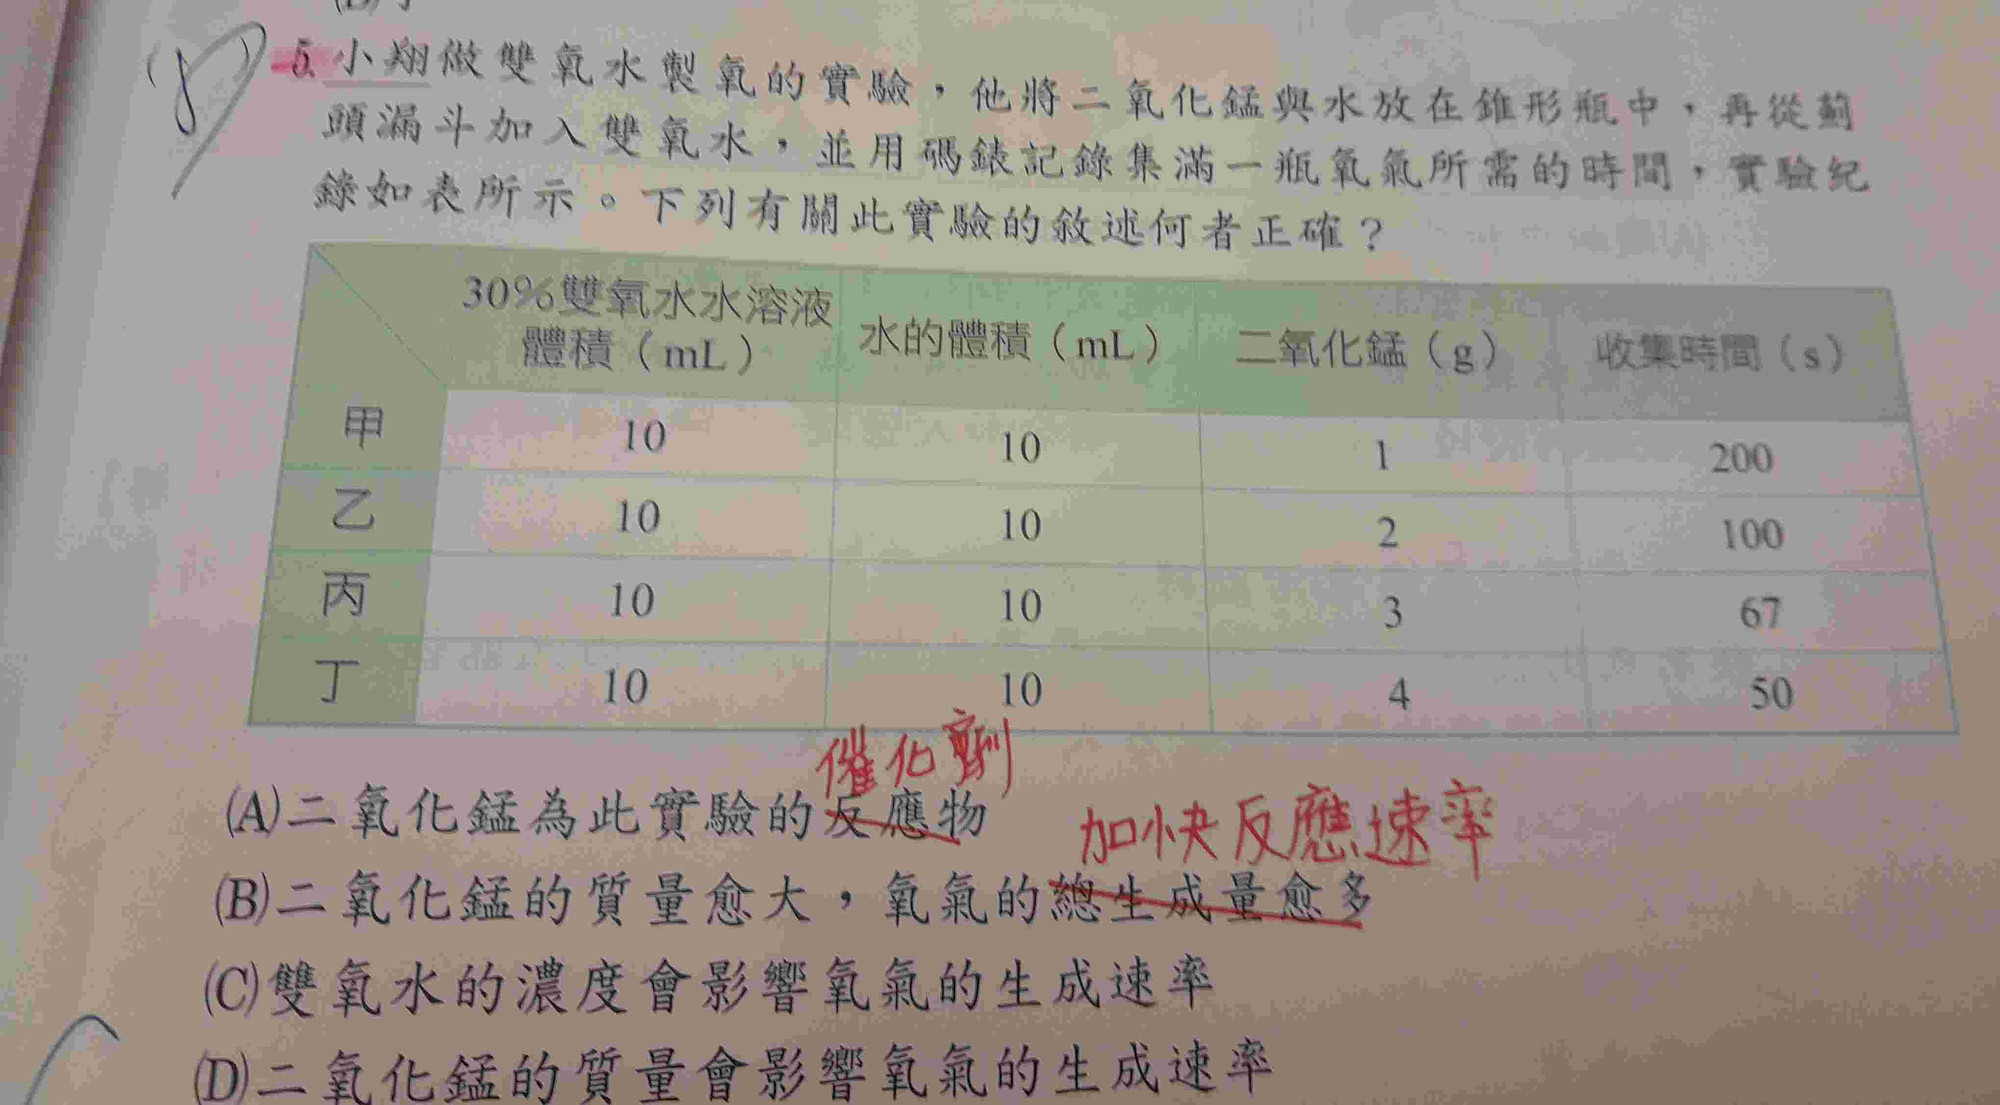 5. 小翔做雙氧水製氧的實驗，他將二氧化錳與水放在錐形瓶中，再從薊
頭漏斗加入雙氧水，並用碼錶記錄集滿一瓶氧氣所需的時間，實驗紀
錄如表所示。下列有關此實驗的敘述何者正確？
30%雙氧水水溶液體積（mL） 水的體積（mL） 二氧化錳（g） 收集時間（s）
甲 10 10 1 200
乙 10 10 2 100
丙 10 10 3 67
丁 10 10 4 50
催化劑
(A)二氧化錳為此實驗的反應物
加快反應速率
(B)二氧化錳的質量愈大，氧氣的總生成量愈多
(C)雙氧水的濃度會影響氧氣的生成速率
(D)二氧化錳的質量會影響氧氣的生成速率